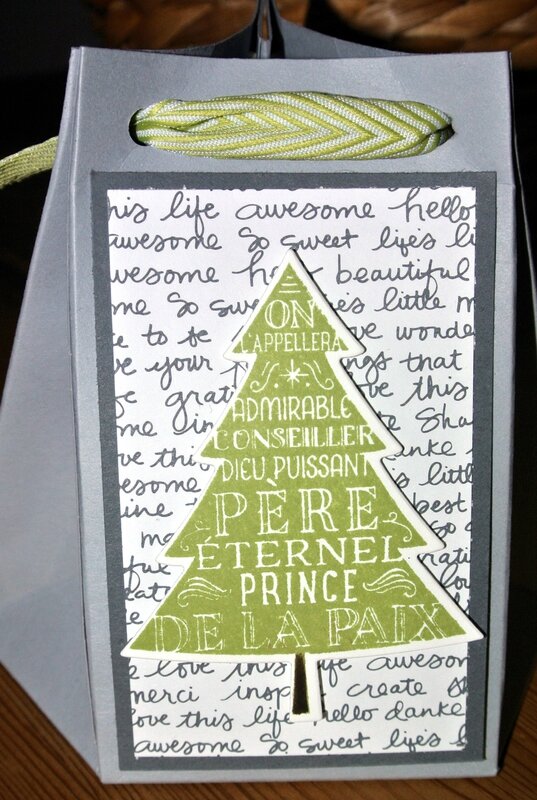 his life awesome hello
awesome so sweet life's li
awesome he beautiful
me so swe es little m
e to be ve wonde
ve your ngs that
fe grati ve this
me in te Sha
ove this danke
esome little
ine best
ma so
ON
L'APPELLERA
ADMIRABLE
CONSEILLER
DIEU PUISSANT
PÈRE
ÉTERNEL
PRINCE
DE LA PAIX
love this life awesom
merci insp create sh
love this life hello danke
awesome so sweet life's l